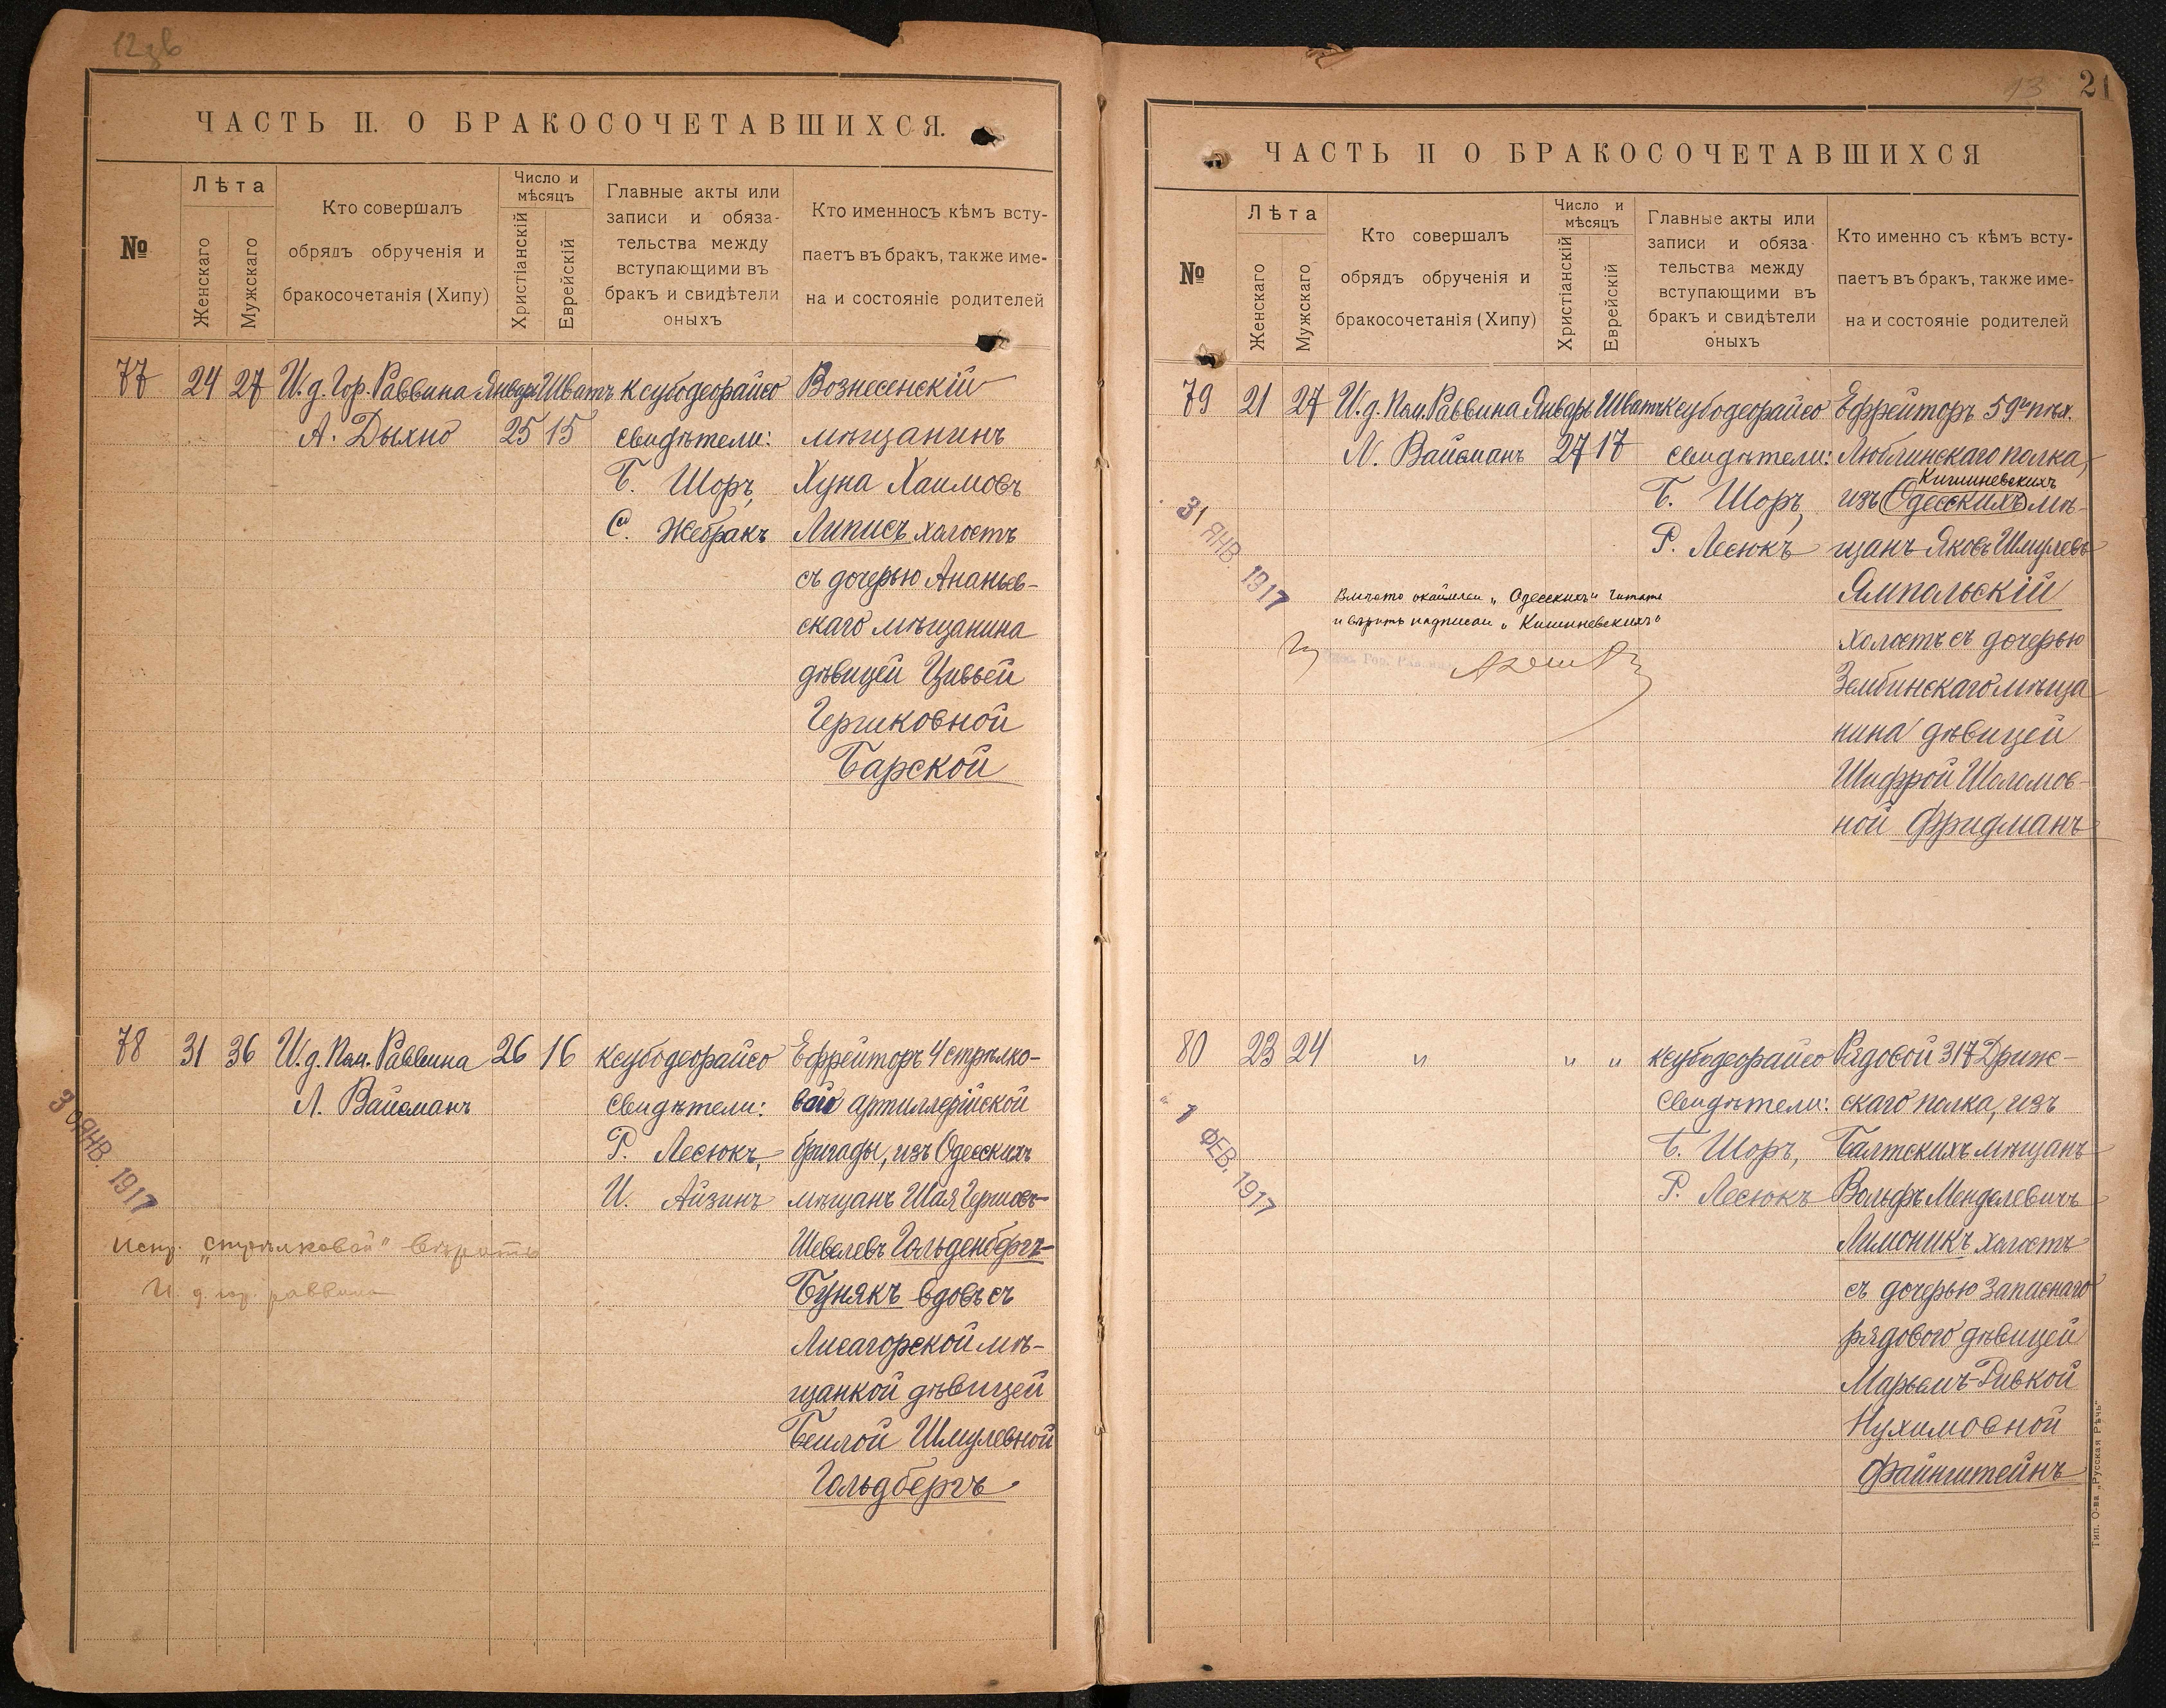 ЧАСТЬ II. О БРАКОСОЧЕТАВШИХСЯ.
№
Лѣта
Женскаго
Мужскаго
Кто совершалъ
обрядъ обрученія и
бракосочетанія (Хипу)
Число и
мѣсяцъ
Христіанскій
Еврейскій
Главные акты или
записи и обяза-
тельства между
вступающими въ
бракъ и свидѣтели
оныхъ
Кто именносъ кѣмъ всту-
паетъ въ бракъ, также име-
на и состояніе родителей
77
24
27
И.д. Гор. Раввина
А. Дыхно
Январь
25
Шватъ
15
ксубодеорайсо
свидѣтели:
Б. Шоръ,
С. Жебракъ
Вознесенскій
мѣщанинъ
Хуна Хаимовъ
Липисъ холостъ
съ дочерью Ананьев-
скаго мѣщанина
дѣвицей Цивьей
Гершковной
Барской
78
31
36
И.д. Пом. Раввина
Л. Вайсманъ
26
16
ксубодеорайсо
свидѣтели:
Р. Лесюкъ,
И. Айзинъ
Ефрейторъ 4 стрѣлко-
вой артиллерійской
бригады, изъ Одесскихъ
мѣщанъ Шая Гершовъ-
Шевелевъ Гольденбергъ-
Бунякъ вдовъ съ
Лисагорской мѣ-
щанкой дѣвицей
Бейлой Шмулевной
Гольдбергъ
30 ЯНВ. 1917
испр. „стрѣлковой" вѣрить
И. д. гор. раввина
13
21
ЧАСТЬ II О БРАКОСОЧЕТАВШИХСЯ
№
Лѣта
Женскаго
Мужскаго
Кто совершалъ
обрядъ обрученія и
бракосочетанія (Хипу)
Число и
мѣсяцъ
Христіанскій
Еврейскій
Главные акты или
записи и обяза-
тельства между
вступающими въ
бракъ и свидѣтели
оныхъ
Кто именно съ кѣмъ всту-
паетъ въ бракъ, также име-
на и состояніе родителей
79
21
27
И.д. Пом. Раввина
Л. Вайсманъ
Январь
27
Шватъ
17
ксубодеорайсо
свидѣтели:
Б. Шоръ,
Р. Лесюкъ
Ефрейторъ 59го пѣх.
Люблинскаго полка,
Кишиневскихъ
изъ Одесскихъ мѣ-
щанъ Яковъ Шмулевъ
Ямпольскій
холостъ съ дочерью
Зембинскаго мѣща-
нина дѣвицей
Шифрой Шоломов-
ной Фридманъ
31 ЯНВ. 1917
Вмѣсто окаймлен „Одесскихъ" читать
и вѣрить надписан „Кишиневскихъ"
80
23
24
"
"
"
ксубодеорайсо
свидѣтели:
Б. Шоръ,
Р. Лесюкъ
Рядовой 317 Дрис-
скаго полка, изъ
Балтскихъ мѣщанъ
Вольфъ Менделевичъ
Лимоникъ холостъ
съ дочерью запаснаго
рядового дѣвицей
Марьемъ-Ривкой
Нухимовной
Файнштейнъ
1 ФЕВ. 1917
Тип. О-ва „Русская Рѣчь"